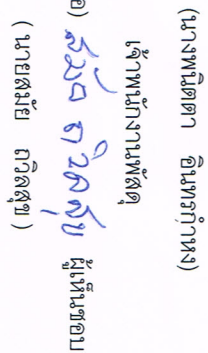 (นางพนิตตา อินทรกำแหง)
เจ้าพนักงานพัสดุ
อ) สมัย ถวิลสุข ผู้เห็นชอบ
( นายสมัย ถวิลสุข )